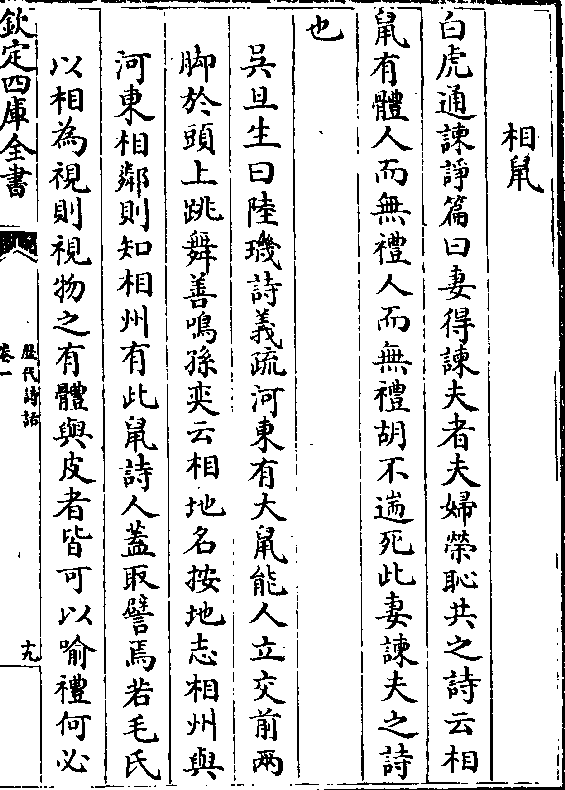 相鼠
白虎通諫諍篇曰妻得諫夫者夫婦榮恥共之詩云相
鼠有體人而無禮人而無禮胡不遄死此妻諫夫之詩
也
吳旦生曰陸璣詩義疏河東有大鼠能人立交前兩
脚於頭上跳舞善鳴孫奕云相地名按地志相州與
河東相鄰則知相州有此鼠詩人蓋取譬焉若毛氏
以相為視則視物之有體與皮者皆可以喻禮何必
欽定四庫全書
歷代詩話
卷一
十九